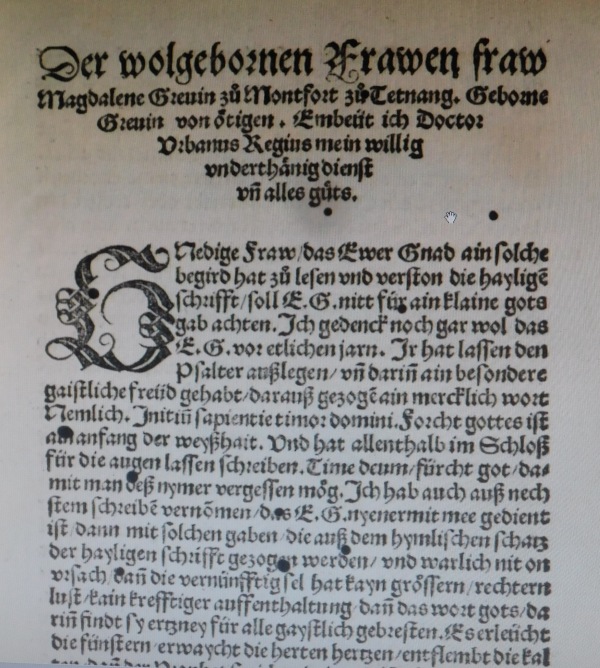 Der wolgebornen Frawen fraw
Magdalene Greuin zů Montfort zů Tetnang. Geborne
Greuin von ötigen. Embeüt ich Doctor
Vrbanus Regius mein willig
vnderthånig dienst
vñ alles gůts.
GNedige Fraw/das Ewer Gnad ain solche
begird hat zů lesen vnd verston die haylige͂
schrifft/soll E.G.nitt für ain klaine gots
gab achten. Ich gedenck noch gar wol das
E.G.vor etlichen jarn. Ir hat lassen den
Psalter außlegen/vñ dariñ ain besondere
gaistliche freüd gehabt/darauß gezoge͂ ain mercklich wort
Nemlich. Initiũ sapientie timor domini. Forcht gottes ist
am anfang der weyßhait. Vnd hat allenthalb im Schloß
für die augen lassen schreiben. Time deum/fürcht got/da-
mit man deß nymer vergessen mög. Ich hab auch auß nech
stem schreibe͂ vernom̃en/das E.G.nyenermit mee gedient
ist/dann mit solchen gaben/die auß dem hymlischen schatz
der hayligen schrifft gezogen werden/vnd warlich nit on
vrsach/dañ die vernünfftig sel hat kayn grössern/rechtern
lust/kain krefftiger auffenthaltung/dañ das wort gots/da
riñ findt sy ertzney für alle gaystlich gebresten. Es erleücht
die fünstern/erwaycht die herten hertzen/entflembt die kal